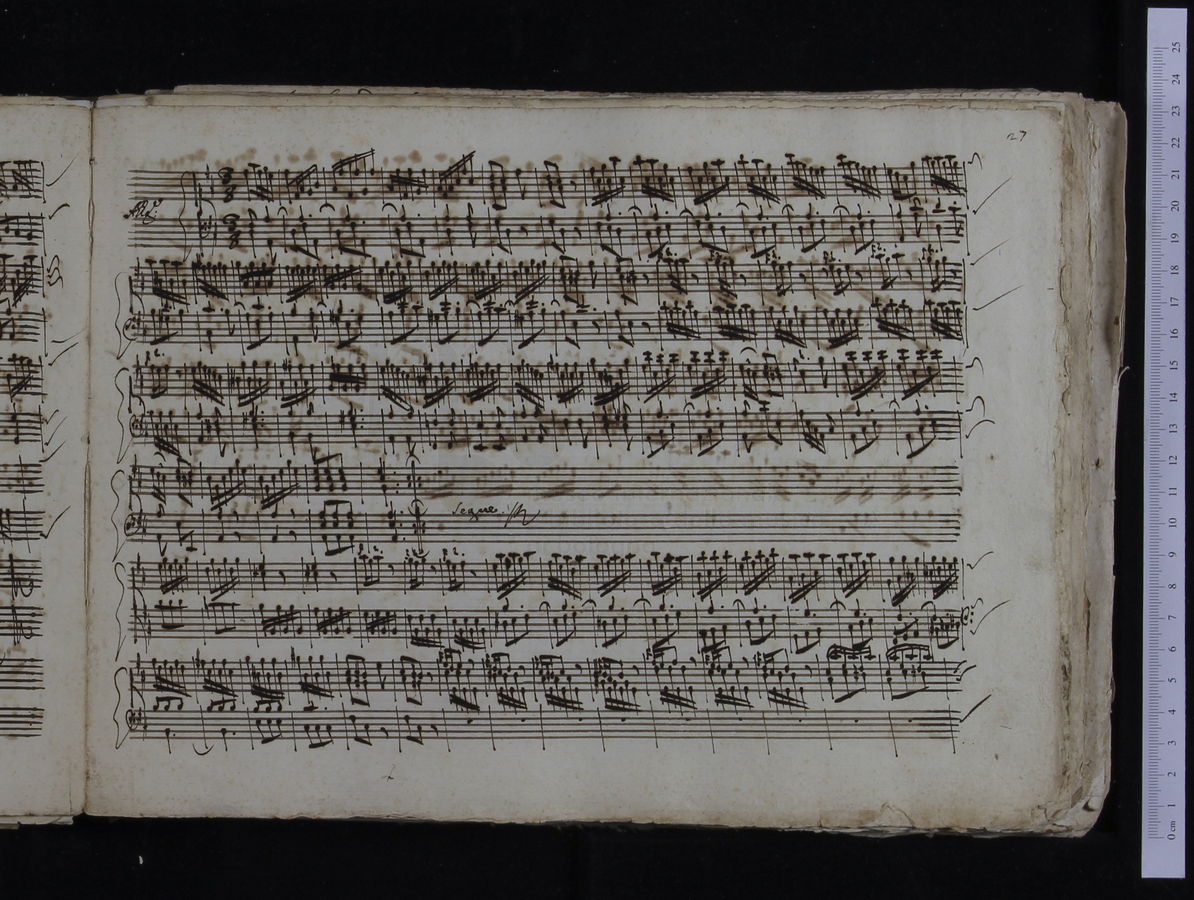 27
All.º
3
8
3
8
Segue
25
24
23
22
21
20
19
18
17
16
15
14
13
12
11
10
9
8
7
6
5
4
3
2
1
0 cm